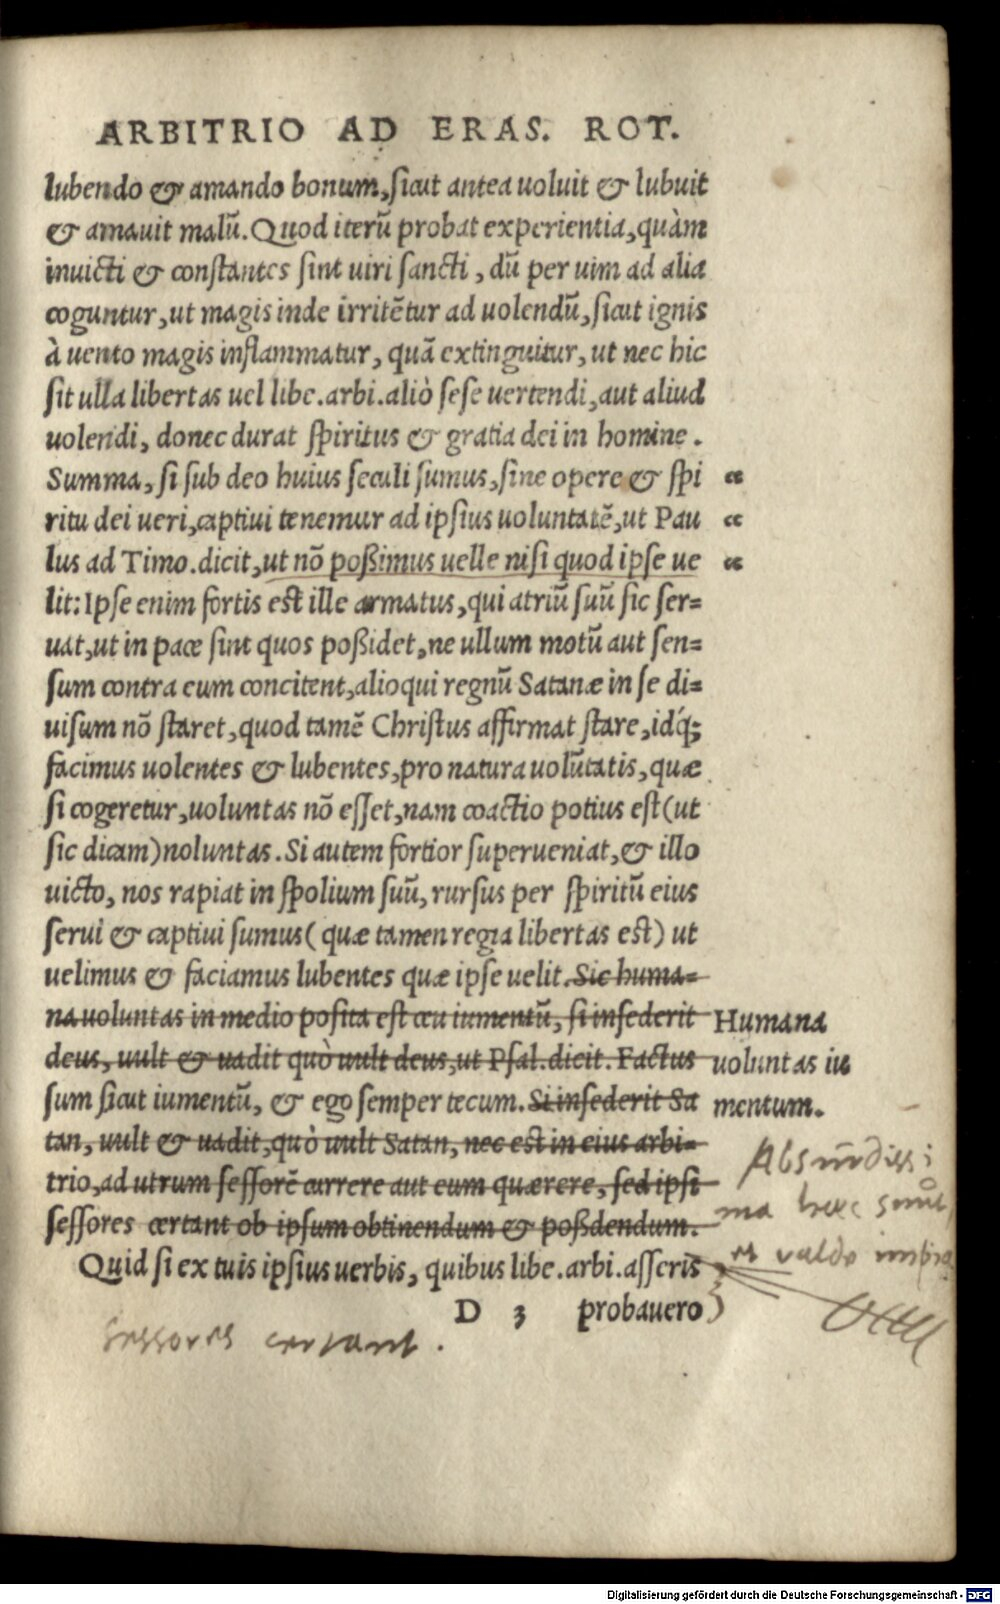 ARBITRIO AD ERAS. ROT.
lubendo & amando bonum, sicut antea uoluit & lubuit
& amauit malū. Quod iterū probat experientia, quàm
inuicti & constantes sint uiri sancti, dū per uim ad alia
coguntur, ut magis inde irritētur ad uolendū, sicut ignis
à uento magis inflammatur, quā extinguitur, ut nec hic
sit ulla libertas uel libe. arbi. aliò sese uertendi, aut aliud
uolendi, donec durat spiritus & gratia dei in homine.
Summa, si sub deo huius seculi sumus, sine opere & spi
ritu dei ueri, captiui tenemur ad ipsius uoluntatē, ut Pau
lus ad Timo. dicit, ut nō poßimus uelle nisi quod ipse ue
lit: Ipse enim fortis est ille armatus, qui atriū suū sic ser=
uat, ut in pace sint quos poßidet, ne ullum motū aut sen=
sum contra eum concitent, alioqui regnū Satanæ in se di=
uisum nō staret, quod tamē Christus affirmat stare, idq́;
facimus uolentes & lubentes, pro natura uolūtatis, quæ
si cogeretur, uoluntas nō esset, nam coactio potius est (ut
sic dicam) noluntas. Si autem fortior superueniat, & illo
uicto, nos rapiat in spolium suū, rursus per spiritū eius
serui & captiui sumus (quæ tamen regia libertas est) ut
uelimus & faciamus lubentes quæ ipse uelit. Sic huma=
na uoluntas in medio posita est ceu iumentū, si insederit
deus, uult & uadit quò uult deus, ut Psal. dicit. Factus
sum sicut iumentū, & ego semper tecum. Si insederit Sa
tan, uult & uadit, quò uult Satan, nec est in eius arbi=
trio, ad utrum sessorē currere aut eum quærere, sed ipsi
sessores certant ob ipsum obtinendum & poßdendum.
Quid si ex tuis ipsius uerbis, quibus libe. arbi. asseris
D 3 probauero
“
“
“
Humana
uoluntas iu
mentum.
Absurdissi
ma haec sunt,
et valde impia
sessores certant.
Digitalisierung gefördert durch die Deutsche Forschungsgemeinschaft - DFG